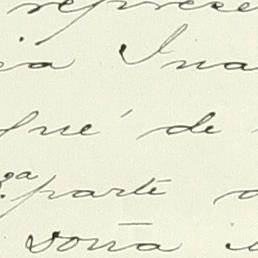 represe
a Ina
fué de
ga parte
doña